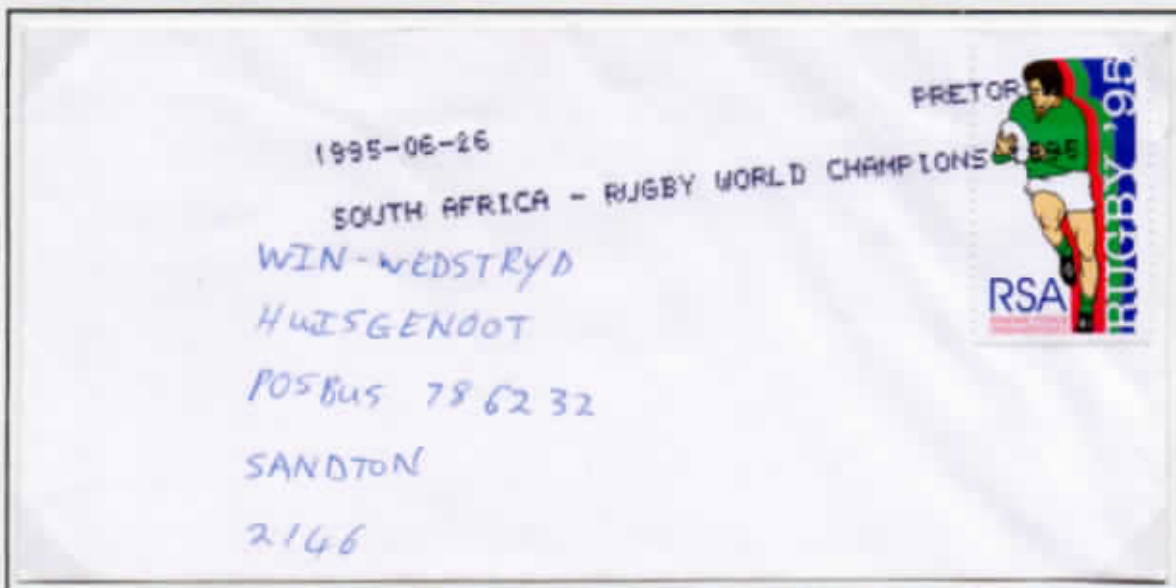 PRETOR
1995-06-26
SOUTH AFRICA - RUGBY WORLD CHAMPIONS 1995
WIN-WEDSTRYD
HUISGENOOT
POSBUS 786232
SANDTON
2146
RSA
RUGBY '95